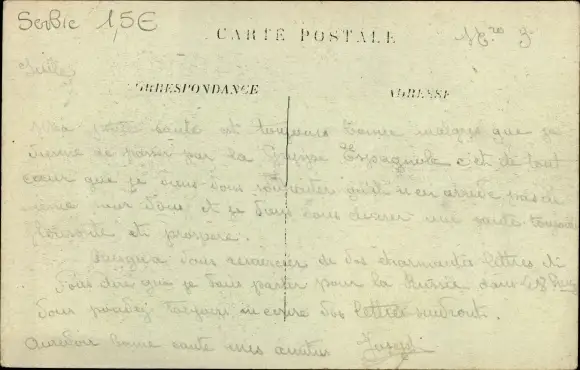 Serbie 1,5€
CARTE POSTALE
Suite
CORRESPONDANCE
ADRESSE
Ma santé est toujours bonne malgré que je
viens de passer par la Grippe Espagnole c'est de tout
cœur que je viens vous souhaiter qu'il n'en arrive pas de
même sur vous et je vous une santé toujours
florissante et prospère.
vous remercier de vos charmantes lettres et
vous dire que je vais partir pour la Russie dans
Vous pouvez toujours m'écrire vos lettres suivront.
Au revoir bonne santé mes amitiés Joseph